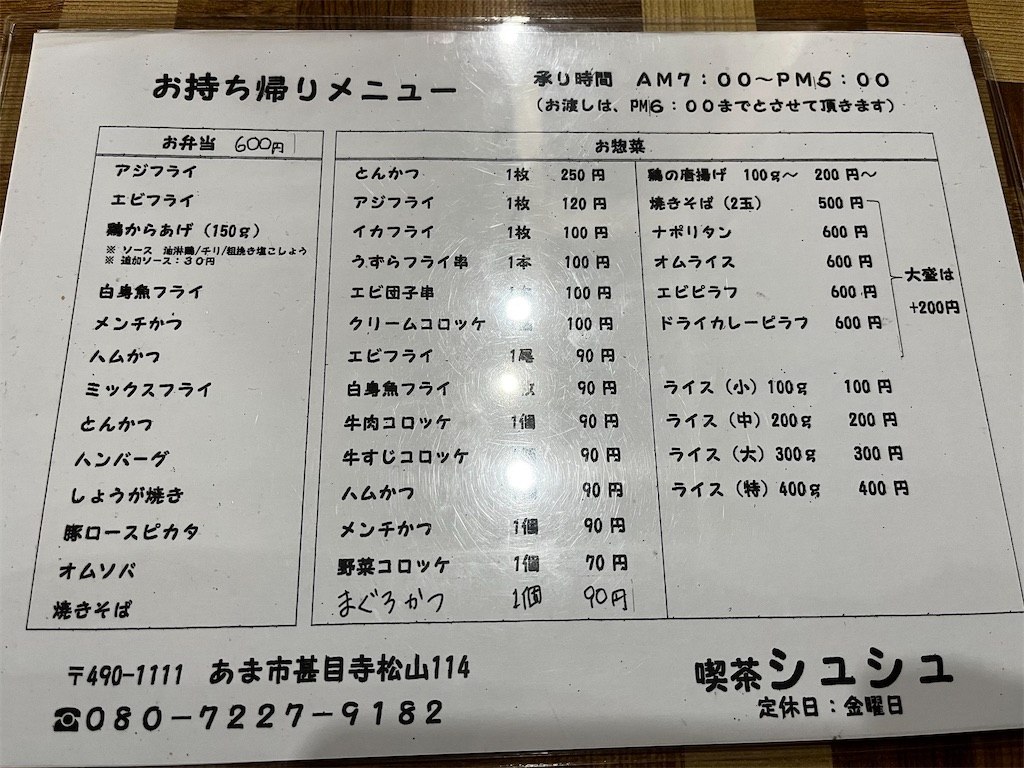 お持ち帰りメニュー
承り時間 AM7:00~PM5:00
(お渡しは、PM6:00までとさせて頂きます)
お弁当 600円
アジフライ
エビフライ
鶏からあげ(150g)
※ ソース 油淋鶏/チリ/粗挽き塩こしょう
※ 追加ソース:30円
白身魚フライ
メンチかつ
ハムかつ
ミックスフライ
とんかつ
ハンバーグ
しょうが焼き
豚ロースピカタ
オムソバ
焼きそば
お惣菜
とんかつ 1枚 250円
アジフライ 1枚 120円
イカフライ 1枚 100円
うずらフライ串 1本 100円
エビ団子串 100円
クリームコロッケ 100円
エビフライ 1尾 90円
白身魚フライ 90円
牛肉コロッケ 1個 90円
牛すじコロッケ 90円
ハムかつ 90円
メンチかつ 1個 90円
野菜コロッケ 1個 70円
まぐろかつ 1個 90円
鶏の唐揚げ 100g~ 200円~
焼きそば(2玉) 500円
ナポリタン 600円
オムライス 600円
エビピラフ 600円
ドライカレーピラフ 600円
大盛は
+200円
ライス(小)100g 100円
ライス(中)200g 200円
ライス(大)300g 300円
ライス(特)400g 400円
〒490-1111 あま市甚目寺松山114
☎080-7227-9182
喫茶シュシュ
定休日:金曜日